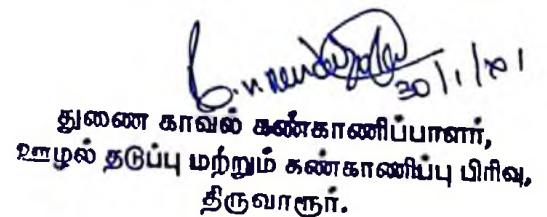 30/1/
துணை காவல் கண்காணிப்பாளர்,
ஊழல் தடுப்பு மற்றும் கண்காணிப்பு பிரிவு,
திருவாரூர்.